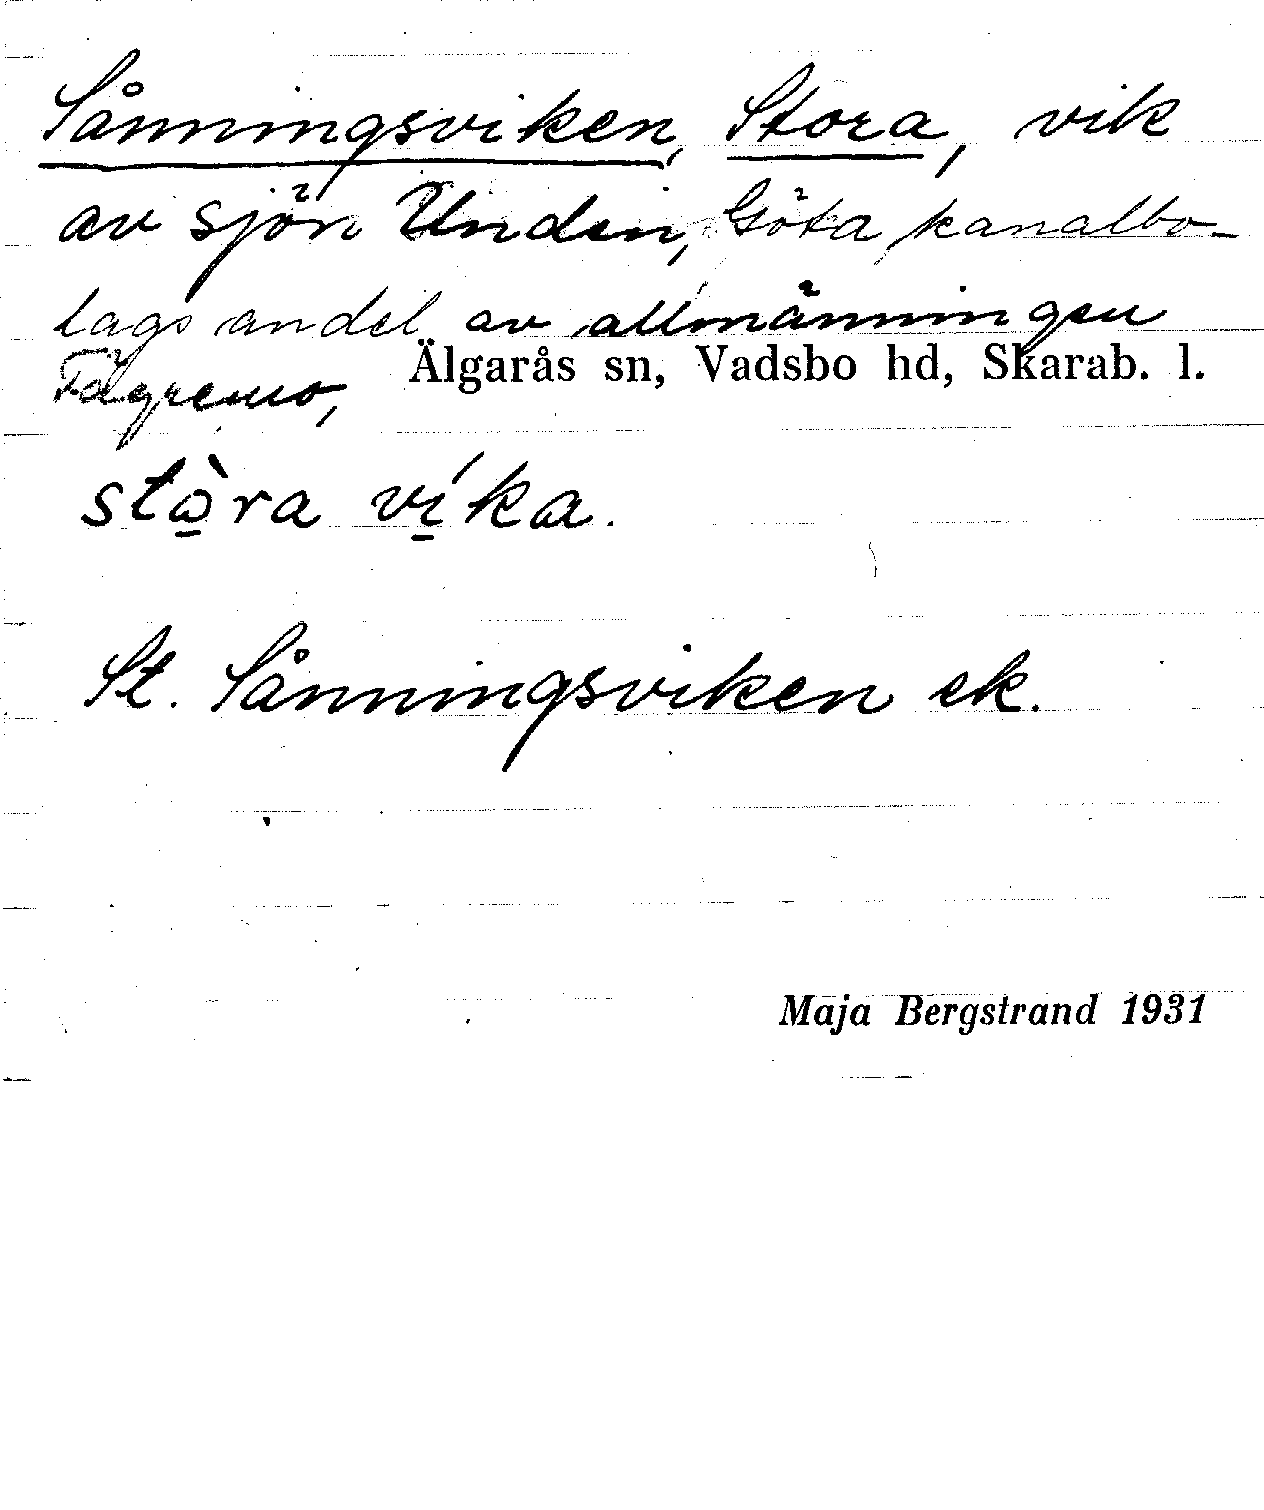 Sånningsviken, Stora, vik
av sjön Unden, Göta kanalbo-
lags andel av allmänningen
Fägremo, Älgarås sn, Vadsbo hd, Skarab. l.
sto̠̊̀ra ví̠ka.
St. Sånningsviken ek.
Maja Bergstrand 1931